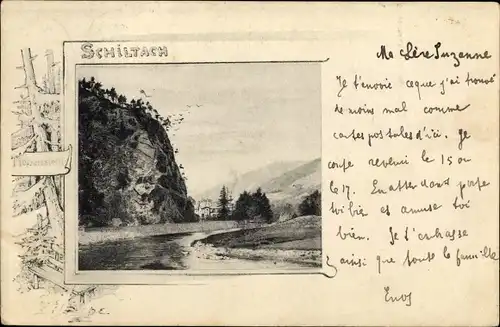 SCHILTACH
Ma chère Suzanne
Je t'envoie ce que j'ai trouvé
de moins mal comme
cartes postales d'ici. Je
compte revenir le 15 ou
le 17. En attendant porte
toi bien et amuse toi
bien. Je t'embrasse
ainsi que toute la famille